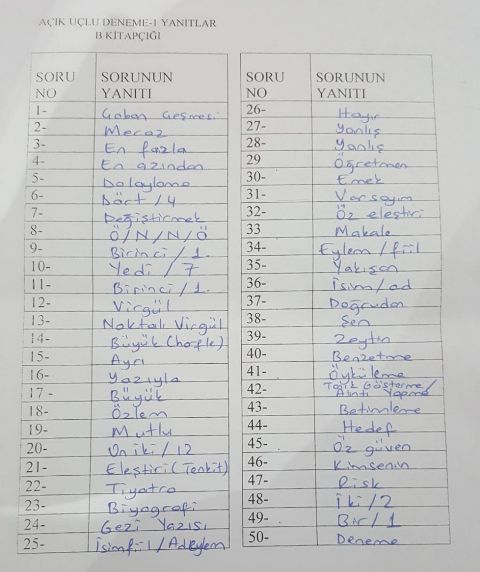 AÇIK UÇLU DENEME-1 YANITLAR
B KİTAPÇIĞI
SORU NO SORUNUN YANITI
1- Çoban Çeşmesi
2- Meraz
3- En fazla
4- En azından
5- Dolaylama
6- Dört / 4
7- Değiştirmek
8- Ö / N / N / Ö
9- Birinci / 1.
10- Yedi / 7
11- Birinci / 1.
12- Virgül
13- Noktalı Virgül
14- Büyük (harfle)
15- Ayrı
16- Yazıyla
17- Büyük
18- Özlem
19- Mutlu
20- On iki / 12
21- Eleştiri (Tenkit)
22- Tiyatro
23- Biyografi
24- Gezi Yazısı
25- İsimfiil / Adeylem
SORU NO SORUNUN YANITI
26- Hayır
27- Yanlış
28- Yanlış
29 Öğretmen
30- Emek
31- Varsayım
32- Öz eleştiri
33 Makale
34- Eylem / fiil
35- Yakışan
36- İsim / ad
37- Doğrudan
38- Şen
39- Zeytin
40- Benzetme
41- Öyküleme
42- Tanık Gösterme / Alıntı Yapma
43- Betimleme
44- Hedef
45- Öz güven
46- Kimsenin
47- Risk
48- İki / 2
49- Bir / 1
50- Deneme